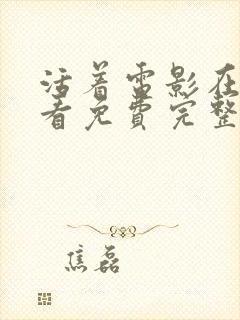 活着电影在
看免费完整
焦磊